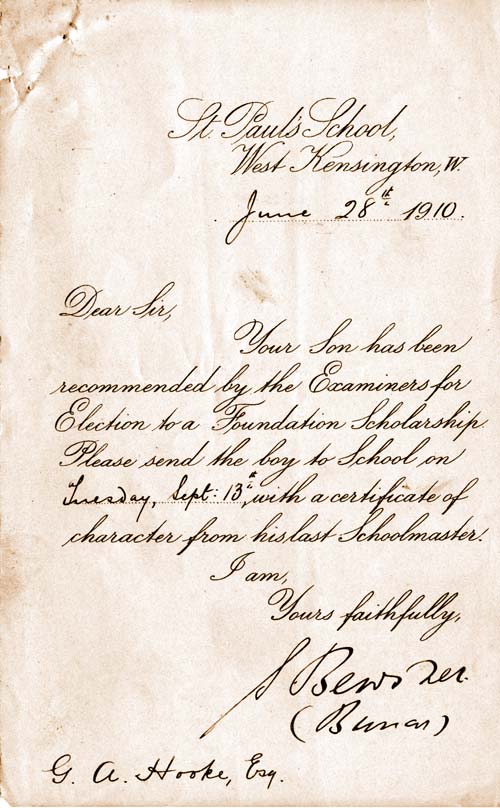 St. Paul's School,
West Kensington, W.
June 28th 1910.
Dear Sir,
Your Son has been
recommended by the Examiners for
Election to a Foundation Scholarship.
Please send the boy to School on
Tuesday, Sept: 13th, with a certificate of
character from his last Schoolmaster.
I am,
Yours faithfully,
S Bewsher.
(Bursar)
G. A. Hooke, Esq.